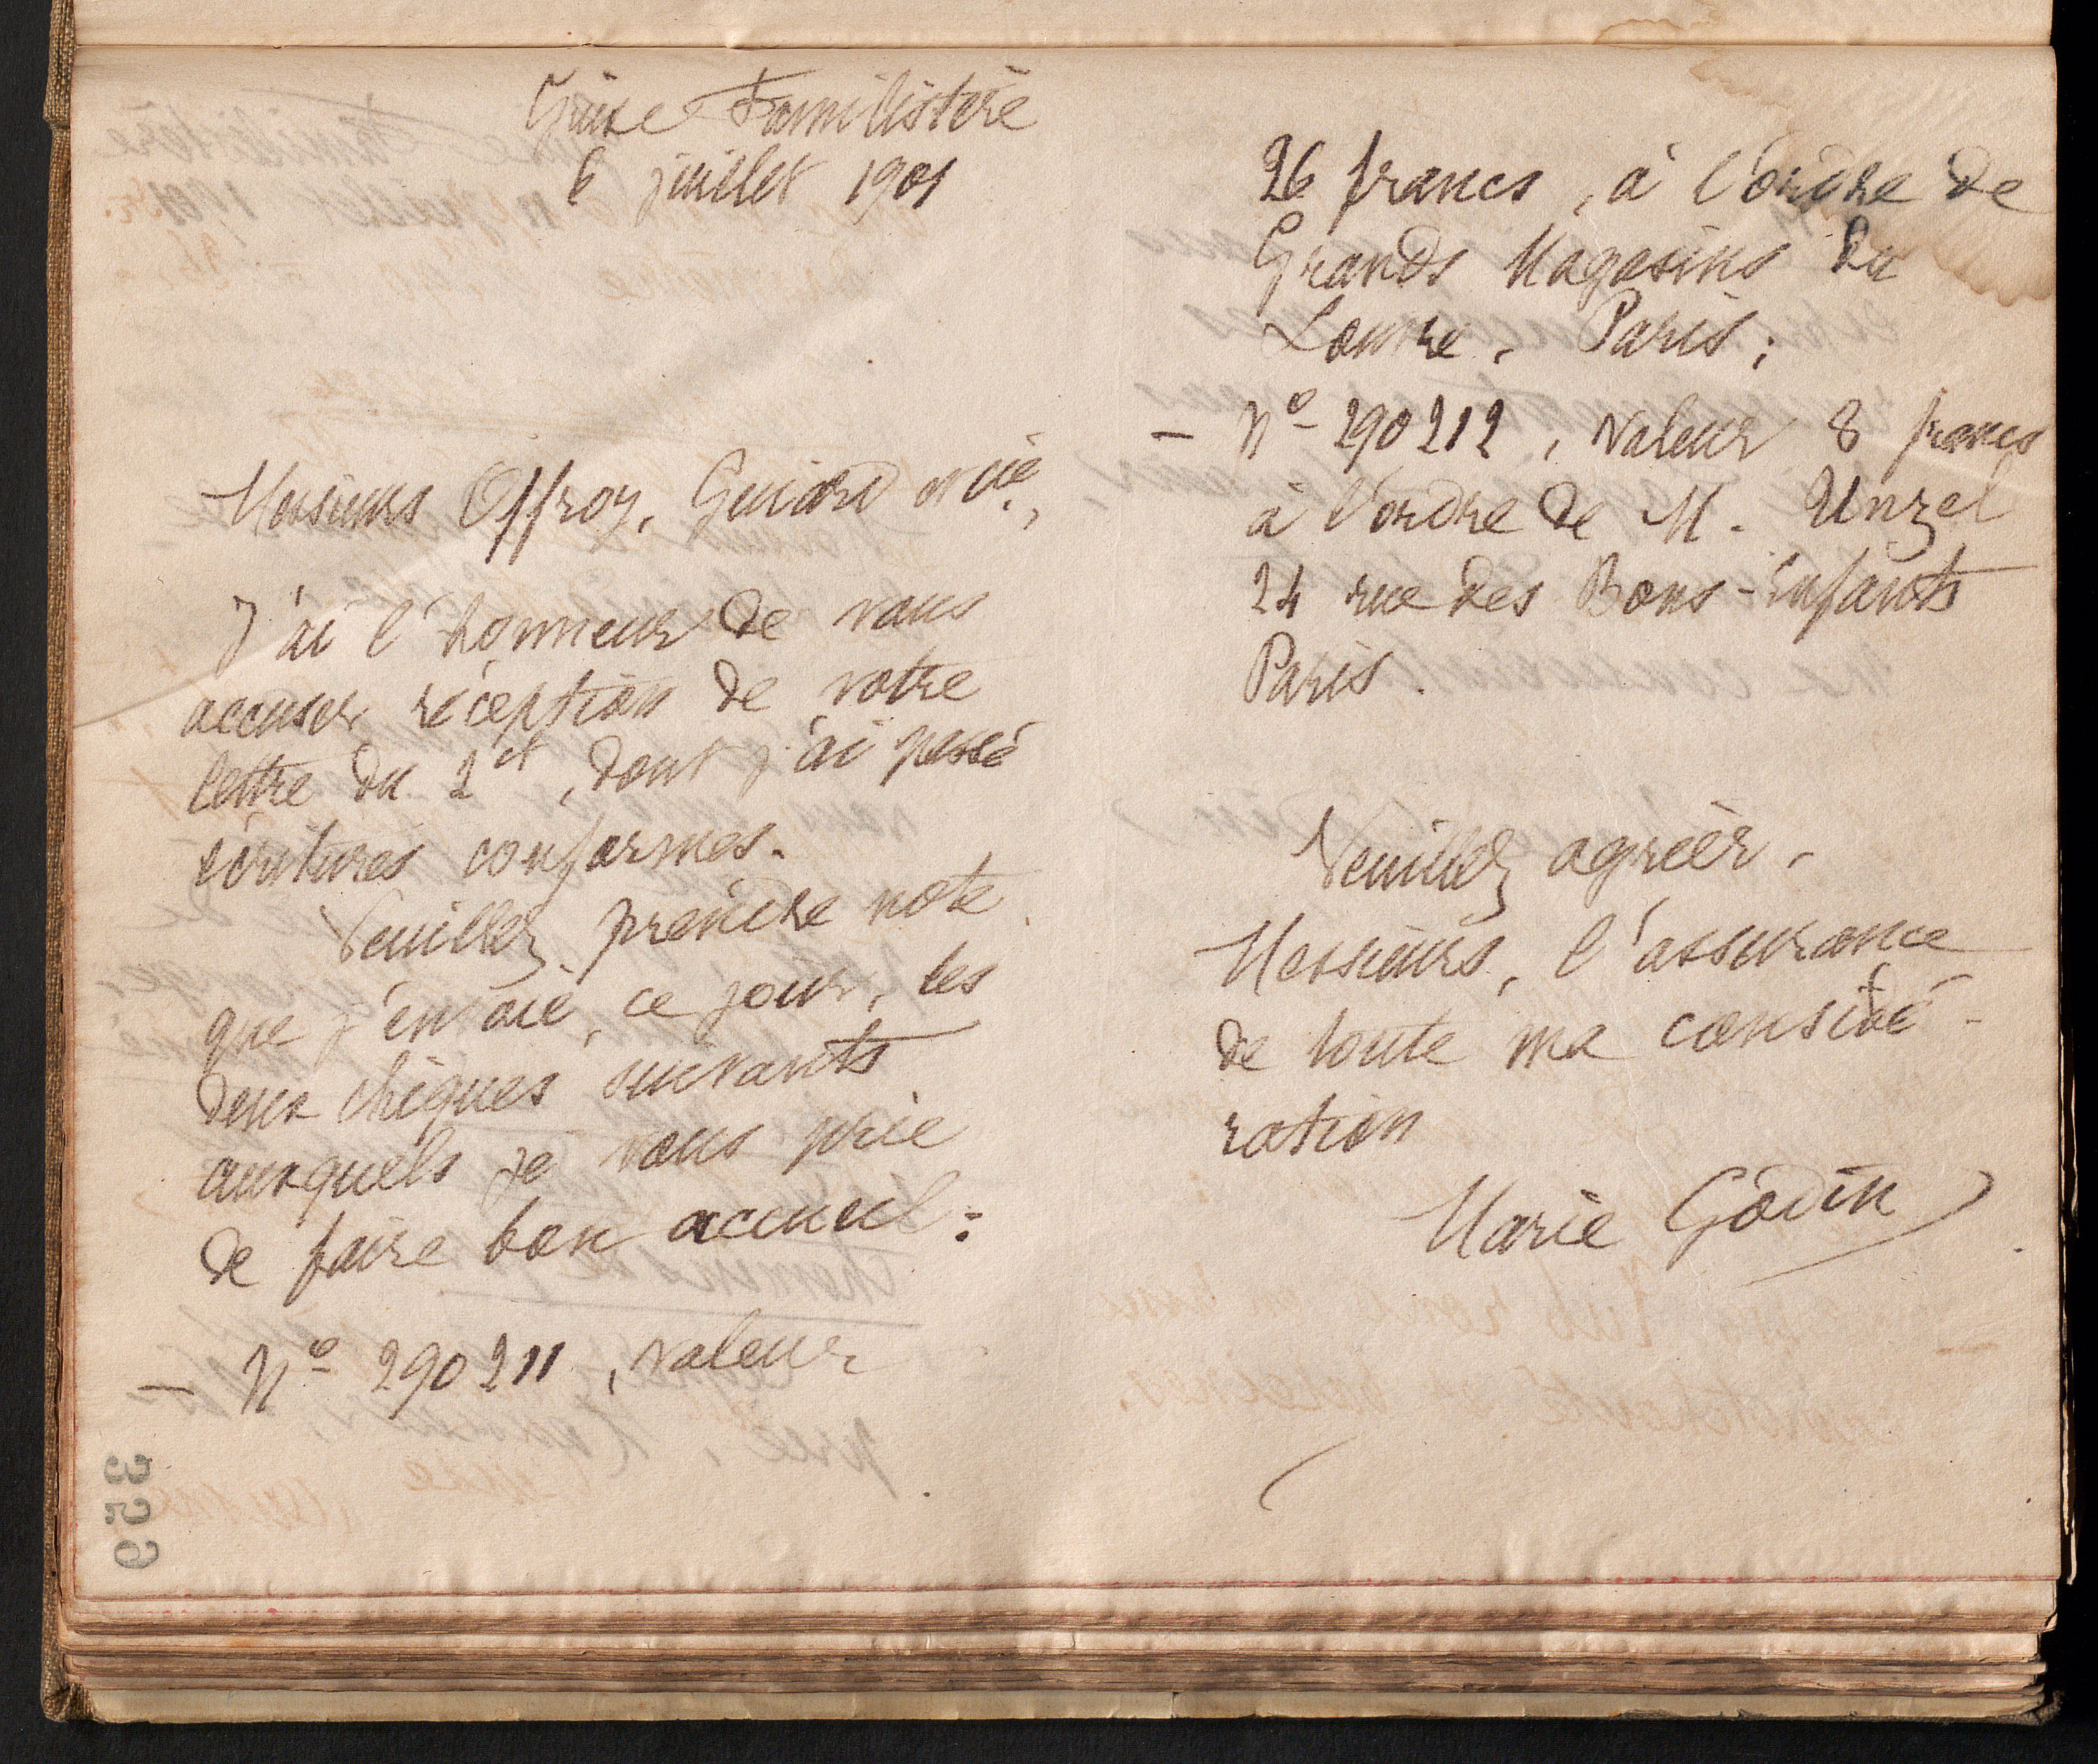 Guise Familistère
6 juillet 1901
Messieurs Offroy, Guiard et Cie,
J'ai l'honneur de vous
accuser réception de votre
lettre du 2 ct, dont j'ai passé
écritures conformes.
Veuillez prendre note
que j'envoie, ce jour, les
deux chèques suivants
auxquels je vous prie
de faire bon accueil :
— No 290211, valeur
26 francs, à l'ordre de
Grands Magasins du
Louvre, Paris ;
— No 290212, valeur 8 francs
à l'ordre de M. Unzel
24 rue des Bons-Enfants
Paris.
Veuillez agréer,
Messieurs, l'assurance
de toute ma considé-
ration
Marie Godin
3559